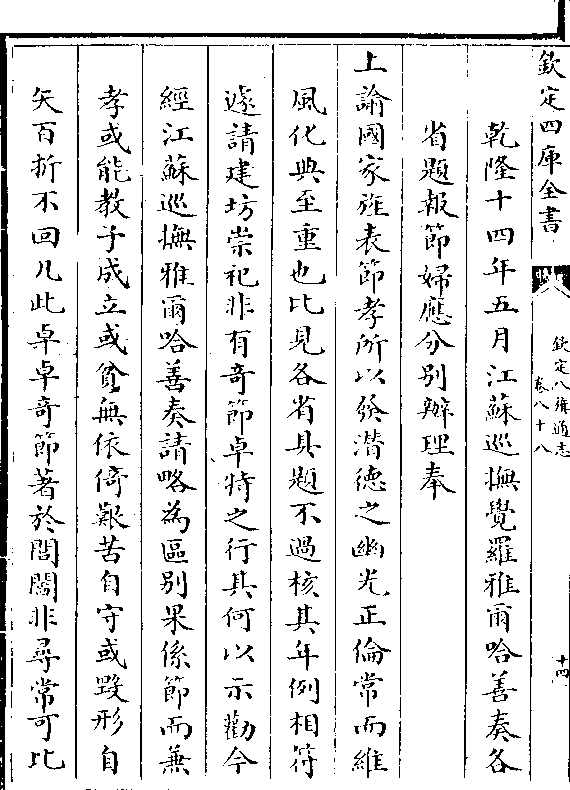 欽定四庫全書
欽定八旗通志
卷八十八
十四
乾隆十四年五月江蘇巡撫覺羅雅爾哈善奏各
省題報節婦應分別辦理奉
上諭國家旌表節孝所以發潛德之幽光正倫常而維
風化典至重也比見各省具題不過核其年例相符
遂請建坊崇祀非有奇節卓特之行其何以示勸今
經江蘇巡撫雅爾哈善奏請略為區別果係節而兼
孝或能教子成立或貧無依倚艱苦自守或毀形自
矢百折不回凡此卓卓奇節著於閭闔非尋常可比